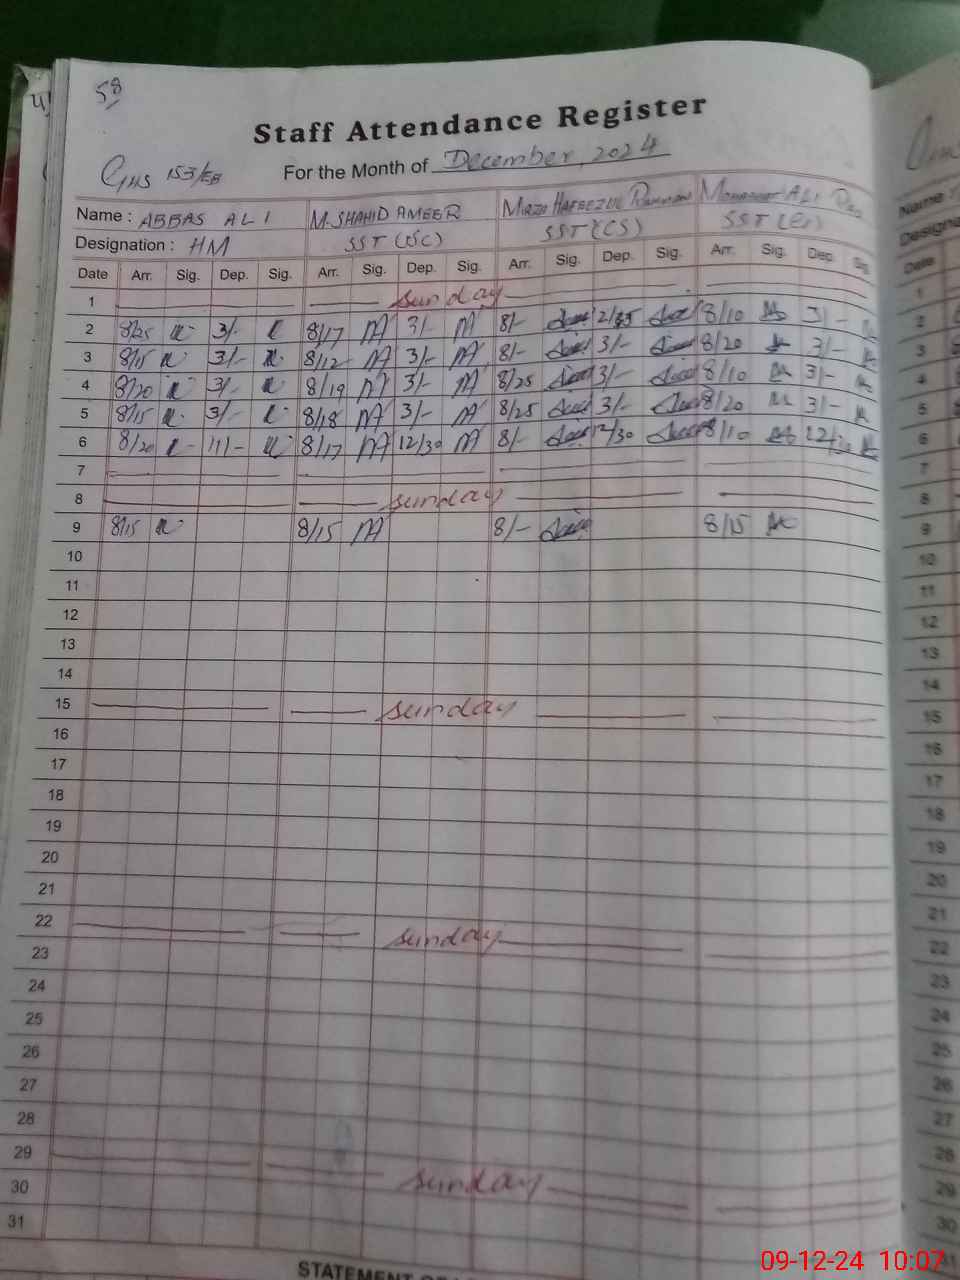 58
Staff Attendance Register
GHS 153/EB For the Month of December, 2024
Name : ABBAS ALI M. SHAHID AMEER MIRZA HAFEEZUL RAHMAN ALI
Designation : HM SST (SC) SST (CS) SST (En)
Date Arr. Sig. Dep. Sig. Arr. Sig. Dep. Sig. Arr. Sig. Dep. Sig. Arr. Sig. Dep. Sig
1 Sunday
2 8/25 3/- 8/17 3/- 8/- 8/10 3/-
3 8/15 3/- 8/12 3/- 8/- 3/- 8/20 3/-
4 8/20 3/- 8/19 3/- 8/25 3/- 8/10 3/-
5 8/15 3/- 8/18 3/- 8/25 3/- 8/20 3/-
6 8/20 8/17 12/30 8/- 12/30 8/10 12/30
7
8 Sunday
9 8/15 8/15 8/- 8/15
10
11
12
13
14
15 Sunday
16
17
18
19
20
21
22 Sunday
23
24
25
26
27
28
29 Sunday
30
31
09-12-24 10:07